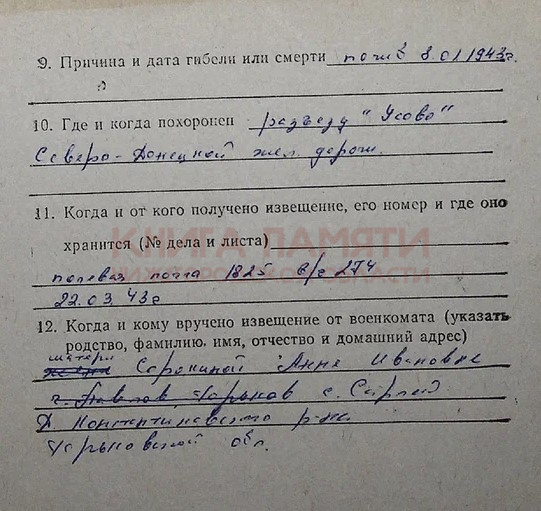 9. Причина и дата гибели или смерти погиб 8 01 1943 г.
10. Где и когда похоронен разъезду "Усово"
Северо-Донецкой жел дороги.
11. Когда и от кого получено извещение, его номер и где оно
хранится (№ дела и листа)
КНИГА ПАМЯТИ
НИЖЕГОРОДСКОЙ ОБЛАСТИ
полевая почта 1825 в/с 274
22.03.43 г
12. Когда и кому вручено извещение от военкомата (указать
родство, фамилию, имя, отчество и домашний адрес)
матери
жене Сорокиной Анне Ивановне
г. Павлов Горьков с.
Д. Константиновского р-на
Горьковской обл.